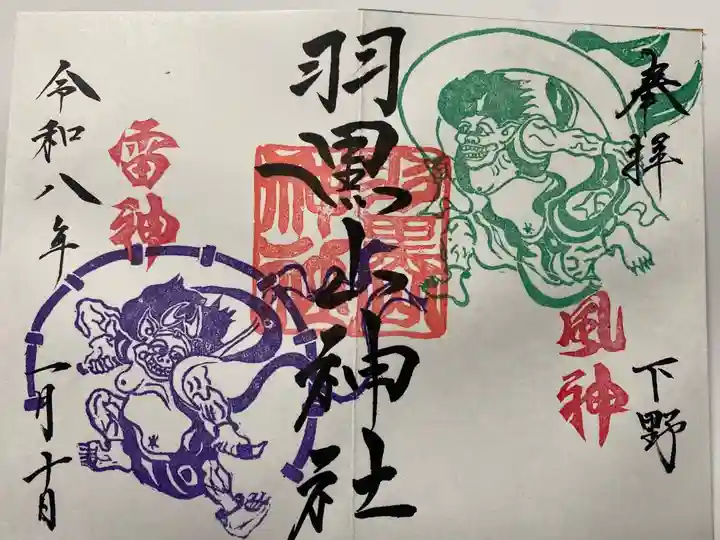 奉拝
下野
風神
羽黒山神社
雷神
令和八年
一月十日